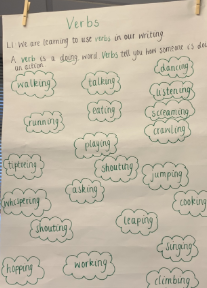 Verbs
LI We are learning to use verbs in our writing
A verb is a doing word. Verbs tell you how someone is doing
an action
walking
talking
dancing
listening
eating
screaming
running
crawling
playing
tiptoeing
shouting
jumping
asking
whispering
cooking
shouting
leaping
singing
hopping
working
climbing